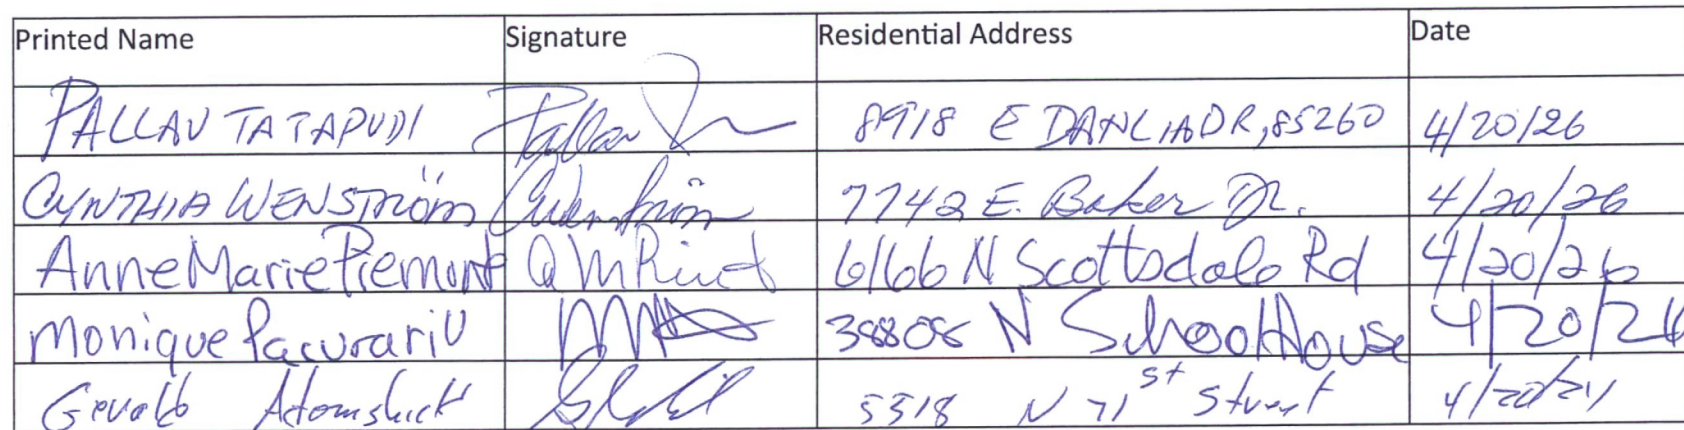 Printed Name Signature Residential Address Date
PALLAV TATAPUDI Pallav 8918 E DAHLIA DR, 85260 4/20/26
CYNTHIA WENSTRÖM CWenström 7742 E. Baker Dr. 4/20/26
Anne Marie Piemonte 6166 N Scottsdale Rd 4/20/26
Monique Pacurariu 38808 N SchoolHouse 4/20/26
5518 N 71st Street